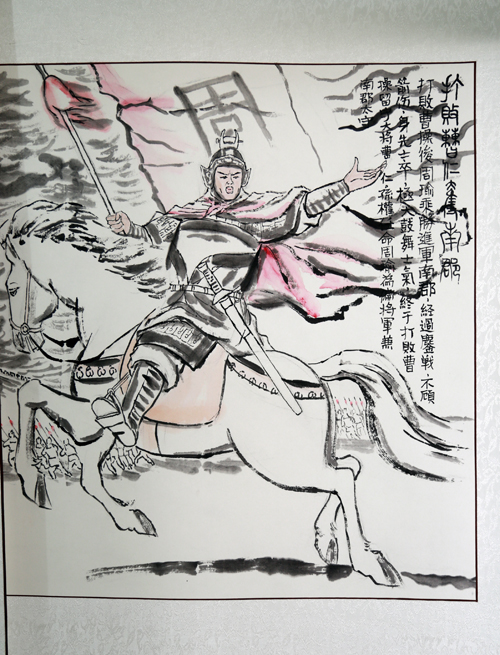 周
打敗曹仁奪南郡
打敗曹操後周瑜乘勝進軍南郡,經過鏖戰,不顧
箭伤身先士卒極大鼓舞士氣終于打敗曹
操留守大將曹仁孫權任命周瑜為偏將軍兼
南郡太守